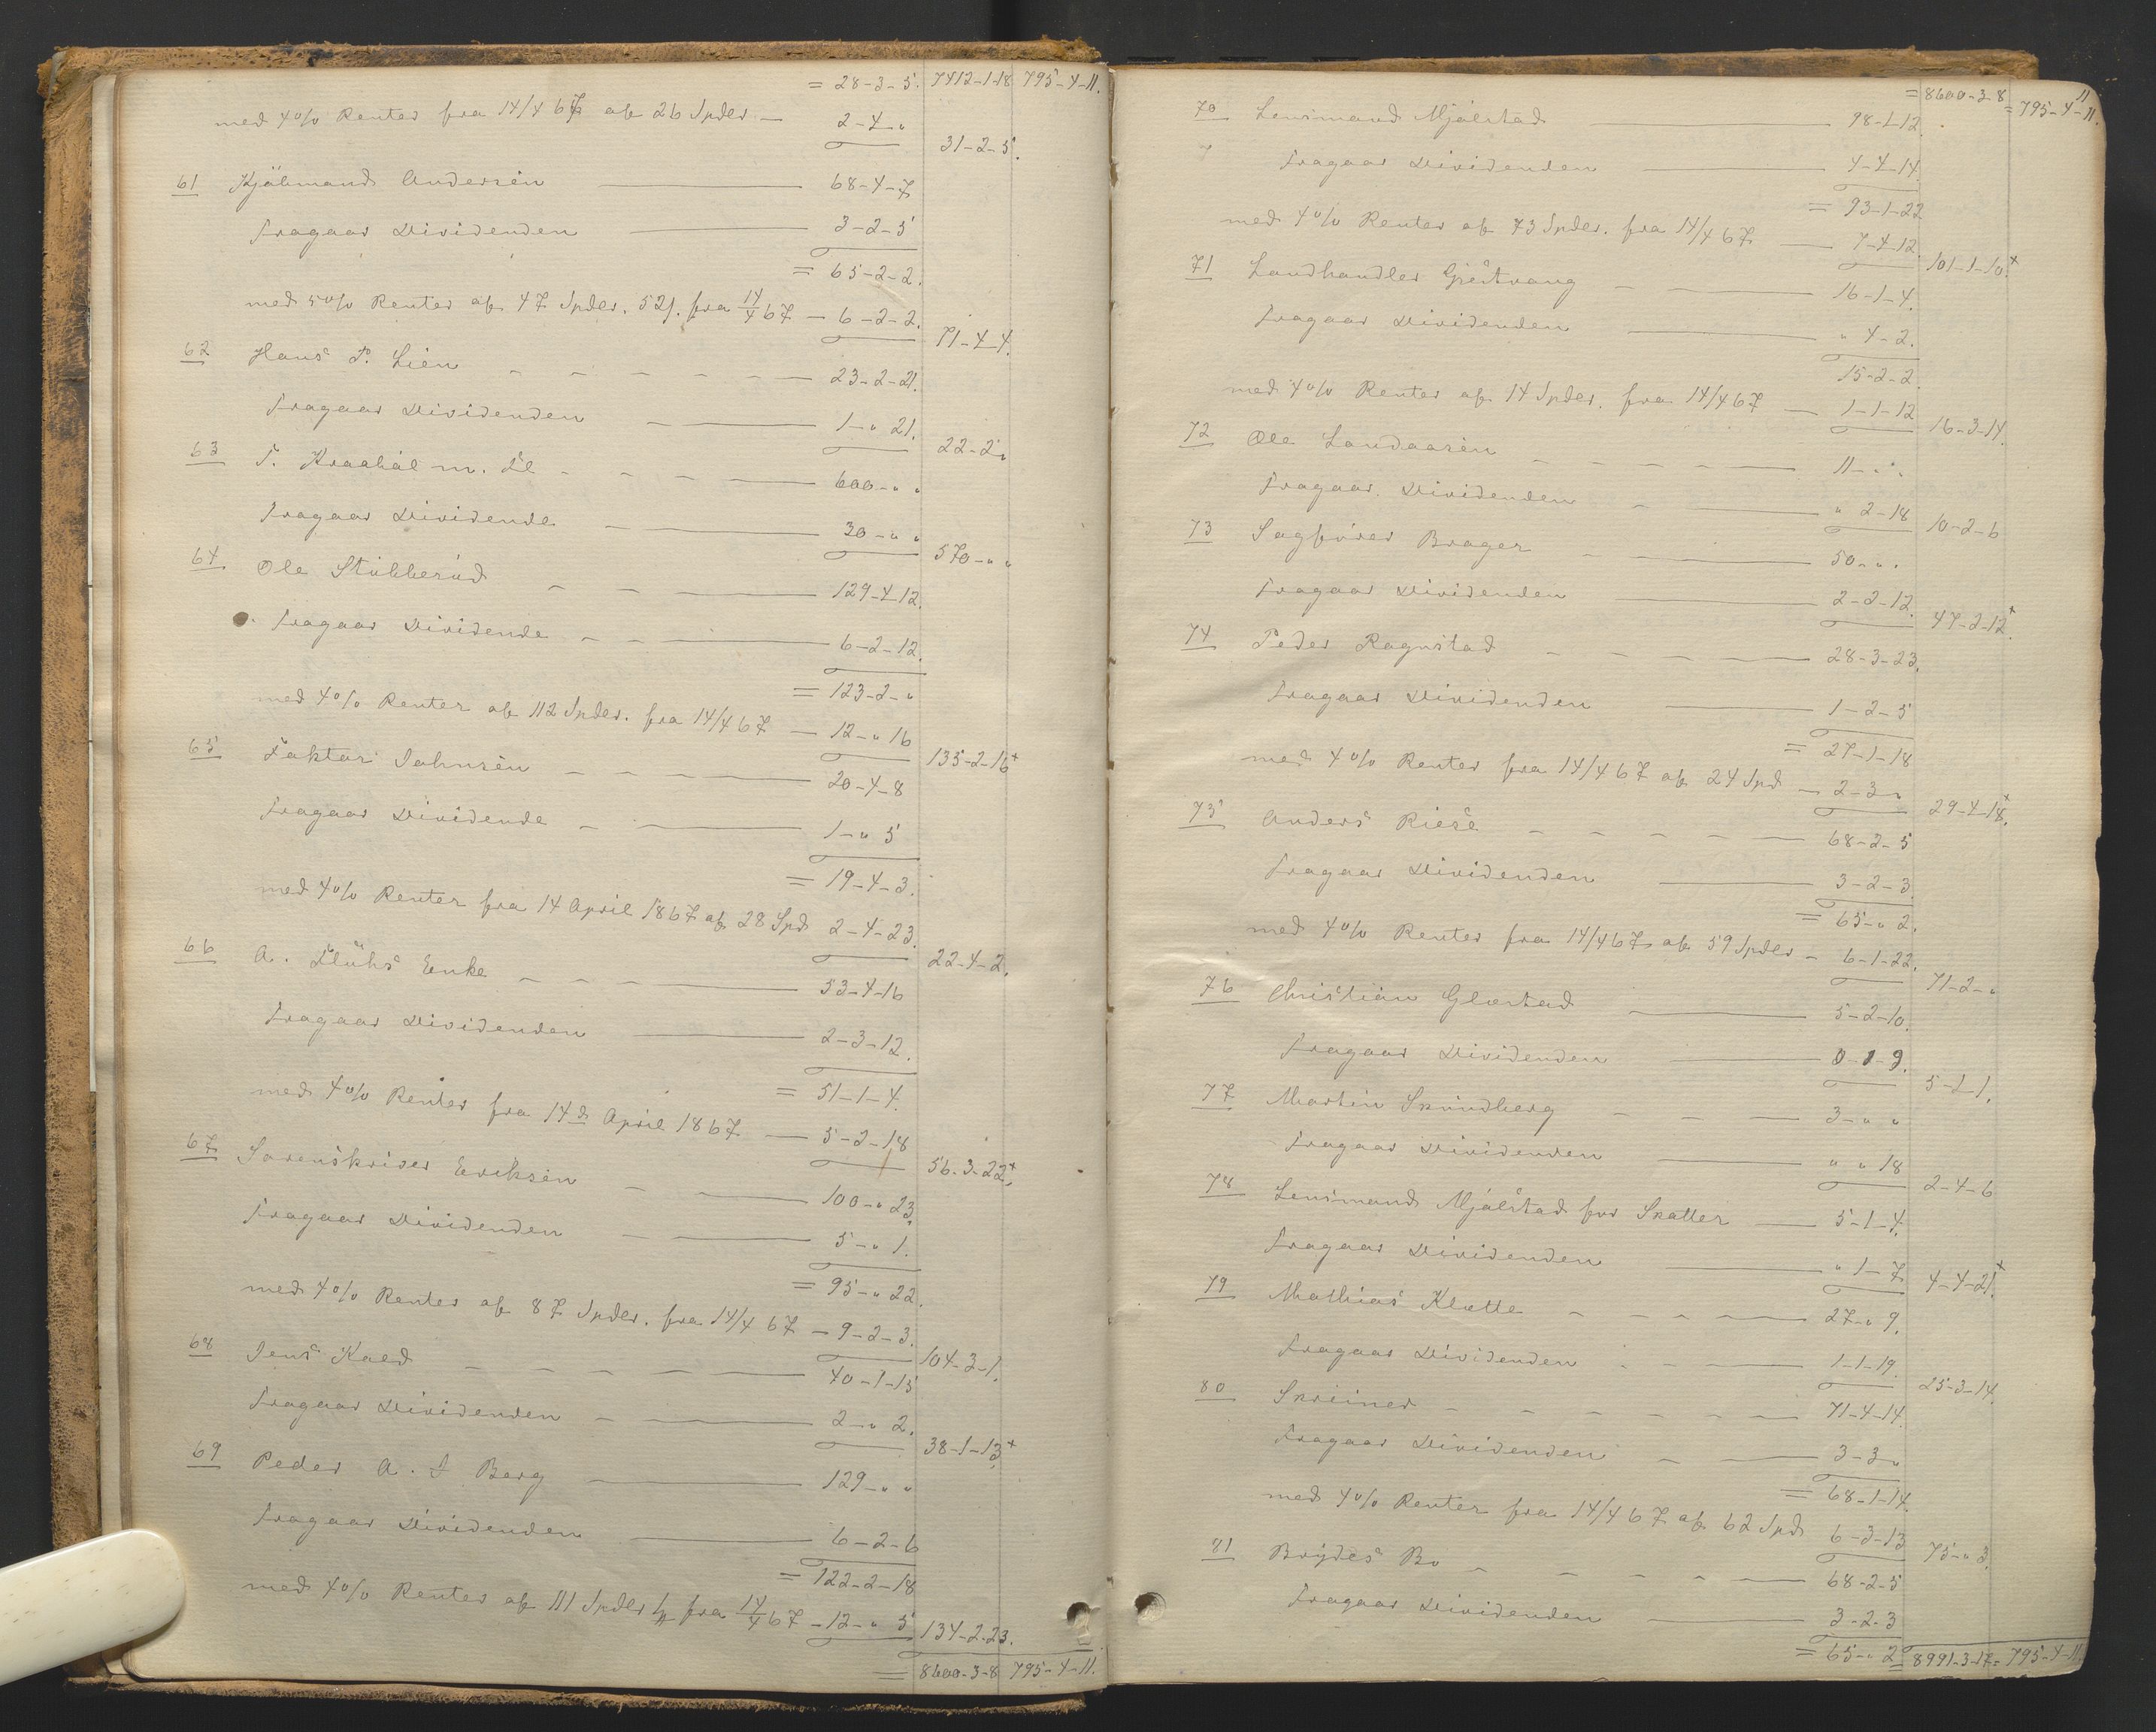 = 28-3-5. 7412-1-18 795-4-11.
med 4% Renter fra 14/4 67 af 26 Spdlr. — 2-4-„ 31-2-5.
61 Andersen — 68-4-7
Fragaar Dividenden — 3-2-5
= 65-2-2.
med 5% Renter af 47 Spdlr. 52/. fra 14/4 67 — 6-2-2. 71-4-4.
62 Hans P. Lien - - - - - — 23-2-21.
Fragaar Dividenden — 1-„ 21. 22-2-„
63 T. m. Fl - - - — 600-„ „
Fragaar Dividende — 30-„ „ 570-„ „
64 Ole Stubberud - - — 129-4-12.
Fragaar Dividende - - — 6-2-12.
= 123-2-„
med 4% Renter af 112 Spdlr. fra 14/4 67 — 12-„ 16 135-2-16+
65 Faktor Johnsen - - - - — 20-4-8
Fragaar Dividende - — 1-„ 5
= 19-4-3.
med 4% Renter fra 14 April 1867 af 28 Spd 2-4-23. 22-4-2.
66 A. Enke - - - - — 53-4-16
Fragaar Dividenden — 2-3-12.
= 51-1-4.
med 4% Renter fra 14d April 1867 — 5-2-18 56-3-22+
67 Sorenskriver Eriksen - — 100-„ 23.
Fragaar Dividenden - — 5-„ 1.
= 95-„ 22.
med 4% Renter af 87 Spdlr. fra 14/4 67 — 9-2-3. 104-3-1.
68 Jens Kaed - - - - — 40-1-15
Fragaar Dividenden - — 2-„ 2. 38-1-13+
69 Peder A. S Berg — 129-„ „
Fragaar Dividenden — 6-2-6
= 122-2-18
med 4% Renter af 111 Spdlr fra 14/4 67 — 12-„ 5 134-2-23.
= 8600-3-8 795-4-11.
= 8600-3-8 = 795-4-11.
70 Lensmand Mjølstad — 98-1-12.
Fragaar Dividenden — 4-4-14.
= 93-1-22
med 4% Renter af 73 Spdlr. fra 14/4 67 — 7-4-12. 101-1-10.+
71 Landhandler Gjestvang - — 16-1-4.
Fragaar Dividenden — „ 4-2.
15-2-2.
med 4% Renter af 14 Spdlr. fra 14/4 67 — 1-1-12 16-3-14.
72 Ole Landaasen - - - - — 11-„ „
Fragaar Dividenden - — „ 2-18 10-2-6
73 Sagfører Brager - — 50-„ „
Fragaar Dividenden — 2-2-12. 47-2-12+
74 Peder Rognstad - - - - — 28-3-23.
Fragaar Dividenden — 1-2-5
= 27-1-18
med 4% Renter fra 14/4 67 af 24 Spd — 2-3-„ 29-4-18.+
75 Anders Riese - - - - — 68-2-5
Fragaar Dividenden — 3-2-3
= 65-„ 2.
med 4% Renter fra 14/4 67 af 59 Spdlr - 6-1-22. 71-2-„
76 Christian Glæstad — 5-2-10.
Fragaar Dividenden — 0-1-9. 5-1-1.
77 Martin Strundberg - - — 3-„ „
Fragaar Dividenden — „ „ 18 2-4-6
78 Lensmand Mjølstad for Skatter — 5-1-4.
Fragaar Dividenden — „ 1-7. 4-4-21.+
79 Mathias Klætte - - - — 27-„ 9.
Fragaar Dividenden - - — 1-1-19. 25-3-14.
80 Skreiner - - - - - - 71-4-14.
Fragaar Dividenden - — 3-3-„
= 68-1-14.
med 4% Renter fra 14/4 67 af 62 Spd 6-3-13 75-„ 3.
81 Brydes Bo - - - - — 68-2-5
Fragaar Dividenden — 3-2-3
= 65-„ 2 = 8991-3-17 = 795-4-11.